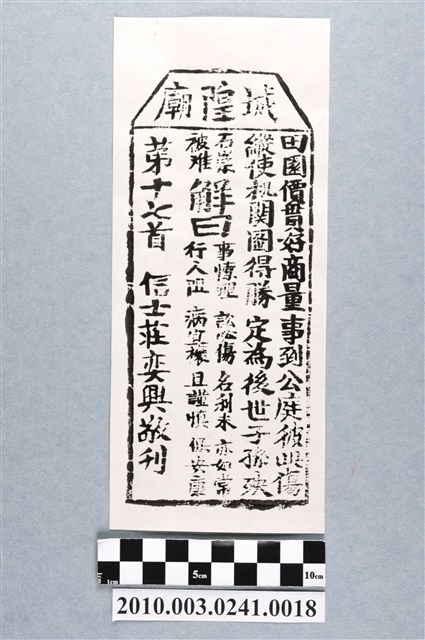 城隍廟
田園價貫好商量 事到公庭彼此傷
縱使機関圖得勝 定為後世子孫殃
石崇被难
解曰
事慷理 訟必傷 名利未 亦如常
行人阻 病宜禳 且謹慎 保安康
第十七首 信士莊奕興敬刊
1cm 5cm 10cm
2010.003.0241.0018